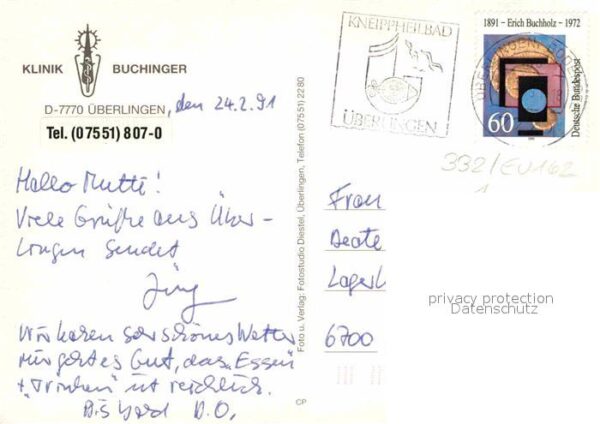 KLINIK BUCHINGER
D-7770 ÜBERLINGEN, den 24.2.91
Tel. (07551) 807-0
Hallo Mutti!
Viele Grüße aus Über-
lingen sendet
Jürg
Wir haben sehr schönes Wetter
mir geht es gut, das "Essen"
+ "Trinken" ist reichlich.
Bis bald D.O.
CP
Foto u. Verlag: Fotostudio Diestel, Überlingen, Telefon (07551) 2280
KNEIPPHEILBAD
ÜBERLINGEN
1891 – Erich Buchholz – 1972
Deutsche Bundespost
60
332/EU162
1
Frau
Beate
Lager
6700
privacy protection
Datenschutz